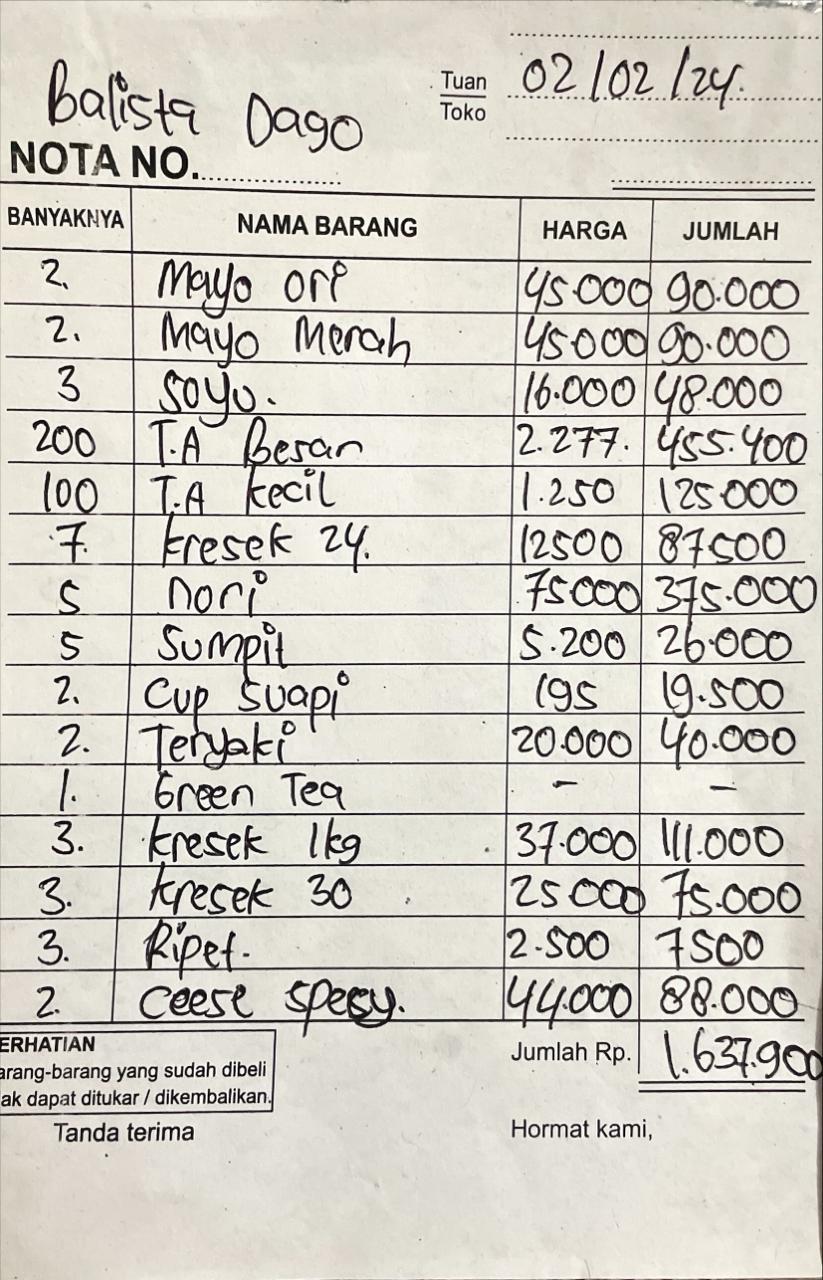 Balista Dago
Tuan
Toko
02/02/24.
NOTA NO.
BANYAKNYA NAMA BARANG HARGA JUMLAH
2. Mayo ori 45.000 90.000
2. Mayo Merah 45.000 90.000
3 Soyu. 16.000 48.000
200 T.A Besar 2.277. 455.400
100 T.A kecil 1.250 125.000
7. kresek 24. 12500 87500
5 nori 75000 375.000
5 Sumpit 5.200 26.000
2. Cup Suapi 195 19.500
2. Teryaki 20.000 40.000
1. Green Tea - -
3. kresek 1kg 37.000 111.000
3. kresek 30 25000 75.000
3. Ripet. 2.500 7500
2. Ceese spesy. 44.000 88.000
ERHATIAN
arang-barang yang sudah dibeli
ak dapat ditukar / dikembalikan.
Jumlah Rp. 1.637.900
Tanda terima Hormat kami,